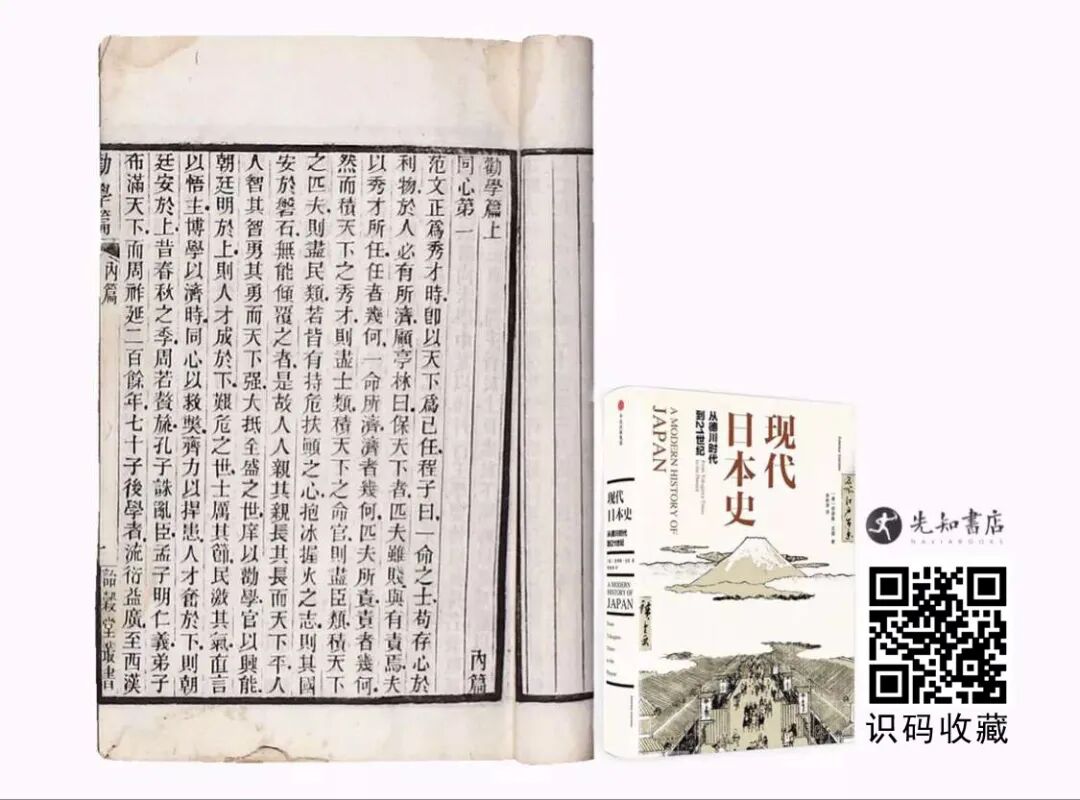 勸學篇上 內篇
同心第一
范文正爲秀才時.卽以天下爲己任.程子曰.一命之士苟存心於
利物於人必有所濟.顧亭林曰保天下者.匹夫雖賤與有責焉.夫
以秀才所任.任者幾何.一命所濟.濟者幾何.匹夫所責.責者幾何.
然而積天下之秀才則盡士類.積天下之命官則盡臣類.積天下
之匹夫則盡民類.若皆有持危扶顚之心.抱冰握火之志.則其國
安於磐石.無能傾覆之者.是故人人親其親長其長而天下平.人
人智其智勇其勇而天下强.大抵全盛之世.庠以勸學.官以興能.
朝廷明於上.則人才成於下.艱危之世.士厲其節.民激其氣.直言
以悟主.博學以濟時.同心以救弊.齊力以捍患.人才奮於下.則朝
廷安於上.昔春秋之季.周若贅旒.孔子誅亂臣.孟子明仁義.弟子
布滿天下.而周祚延二百餘年.七十子後學者.流衍益廣.至西漢
勸學篇 內篇 一
现代
日本史
A MODERN HISTORY OF
JAPAN
从德川时代
到21世纪
现代
日本史
从德川时代
到21世纪
A MODERN
HISTORY OF
JAPAN
先知書店
识码收藏